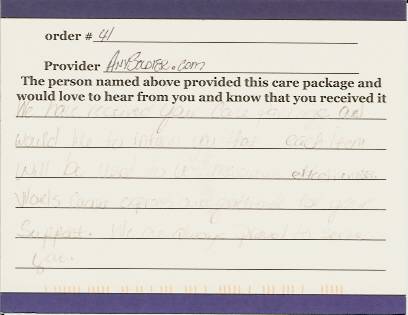 order # 41
Provider AnySoldier.com
The person named above provided this care package and
would love to hear from you and know that you received it
We have received your and
would like to inform you that each item
will be used to effectiveness.
Words cannot express our gratitude for your
Support. We are always proud to serve
you.